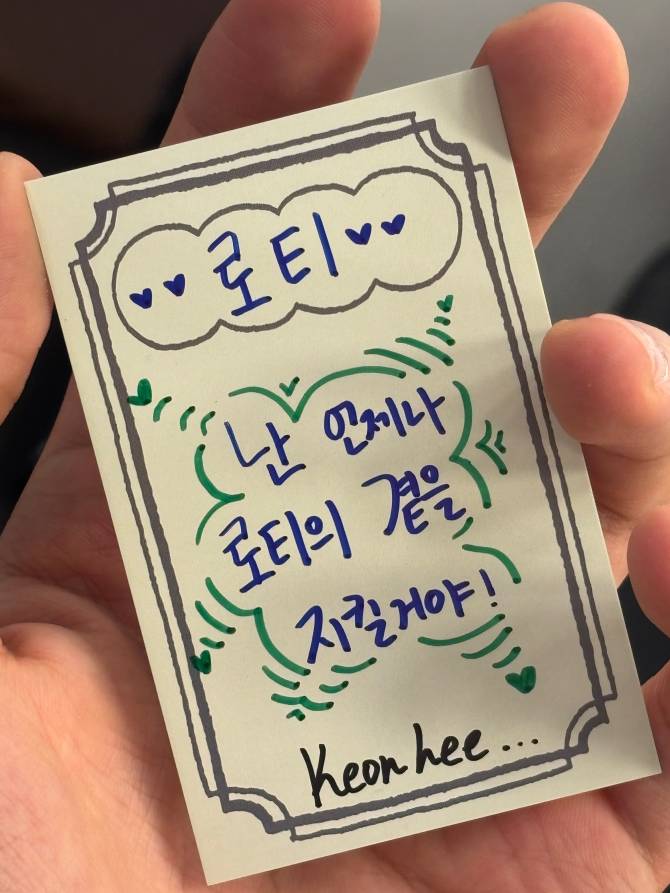 로티
난 언제나
로티의 곁을
지킬거야!
Keonhee...